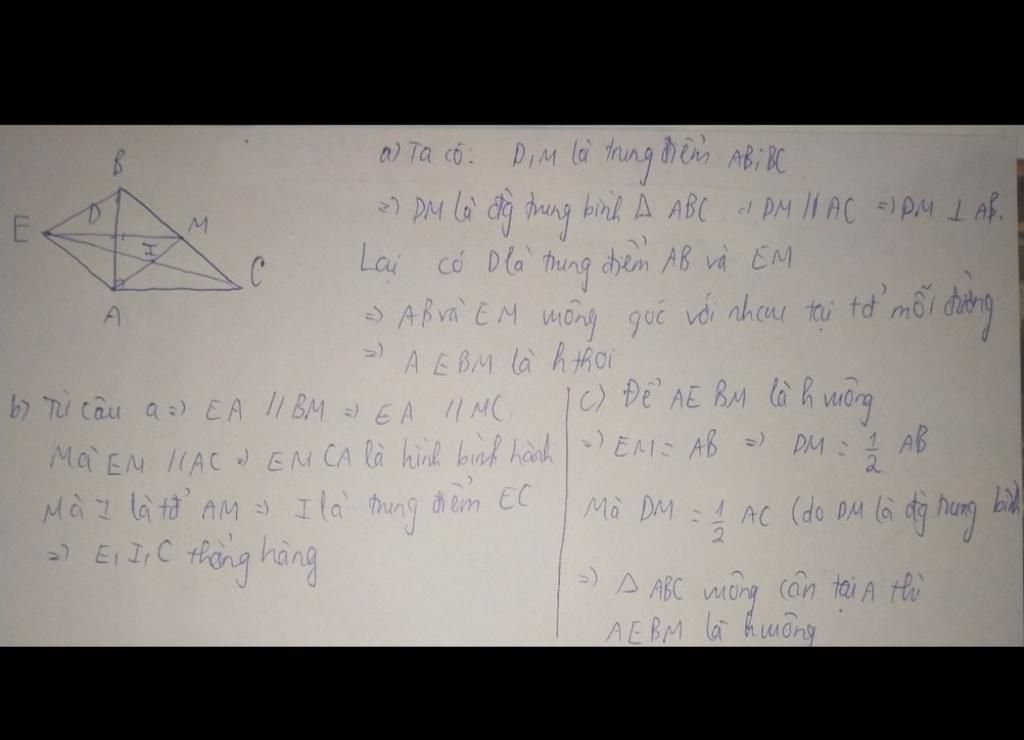 B
D
E
M
I
C
A
a) Ta có: D, M là trung điểm AB; BC
=> DM là đg trung bình Δ ABC => DM // AC => DM ⊥ AB.
Lại có D là trung điểm AB và EM
=> AB và EM vuông góc với nhau tại tđ mỗi đường
=> A EBM là h thoi
b) Từ câu a => EA // BM => EA // MC.
Mà EM // AC => EMCA là hình bình hành
Mà I là tđ AM => I là trung điểm EC
=> E, I, C thẳng hàng
c) Để AEBM là h vuông
=> EM = AB => DM = 1/2 AB
Mà DM = 1/2 AC (do DM là đg trung bình
=> Δ ABC vuông cân tại A thì
AEBM là h vuông